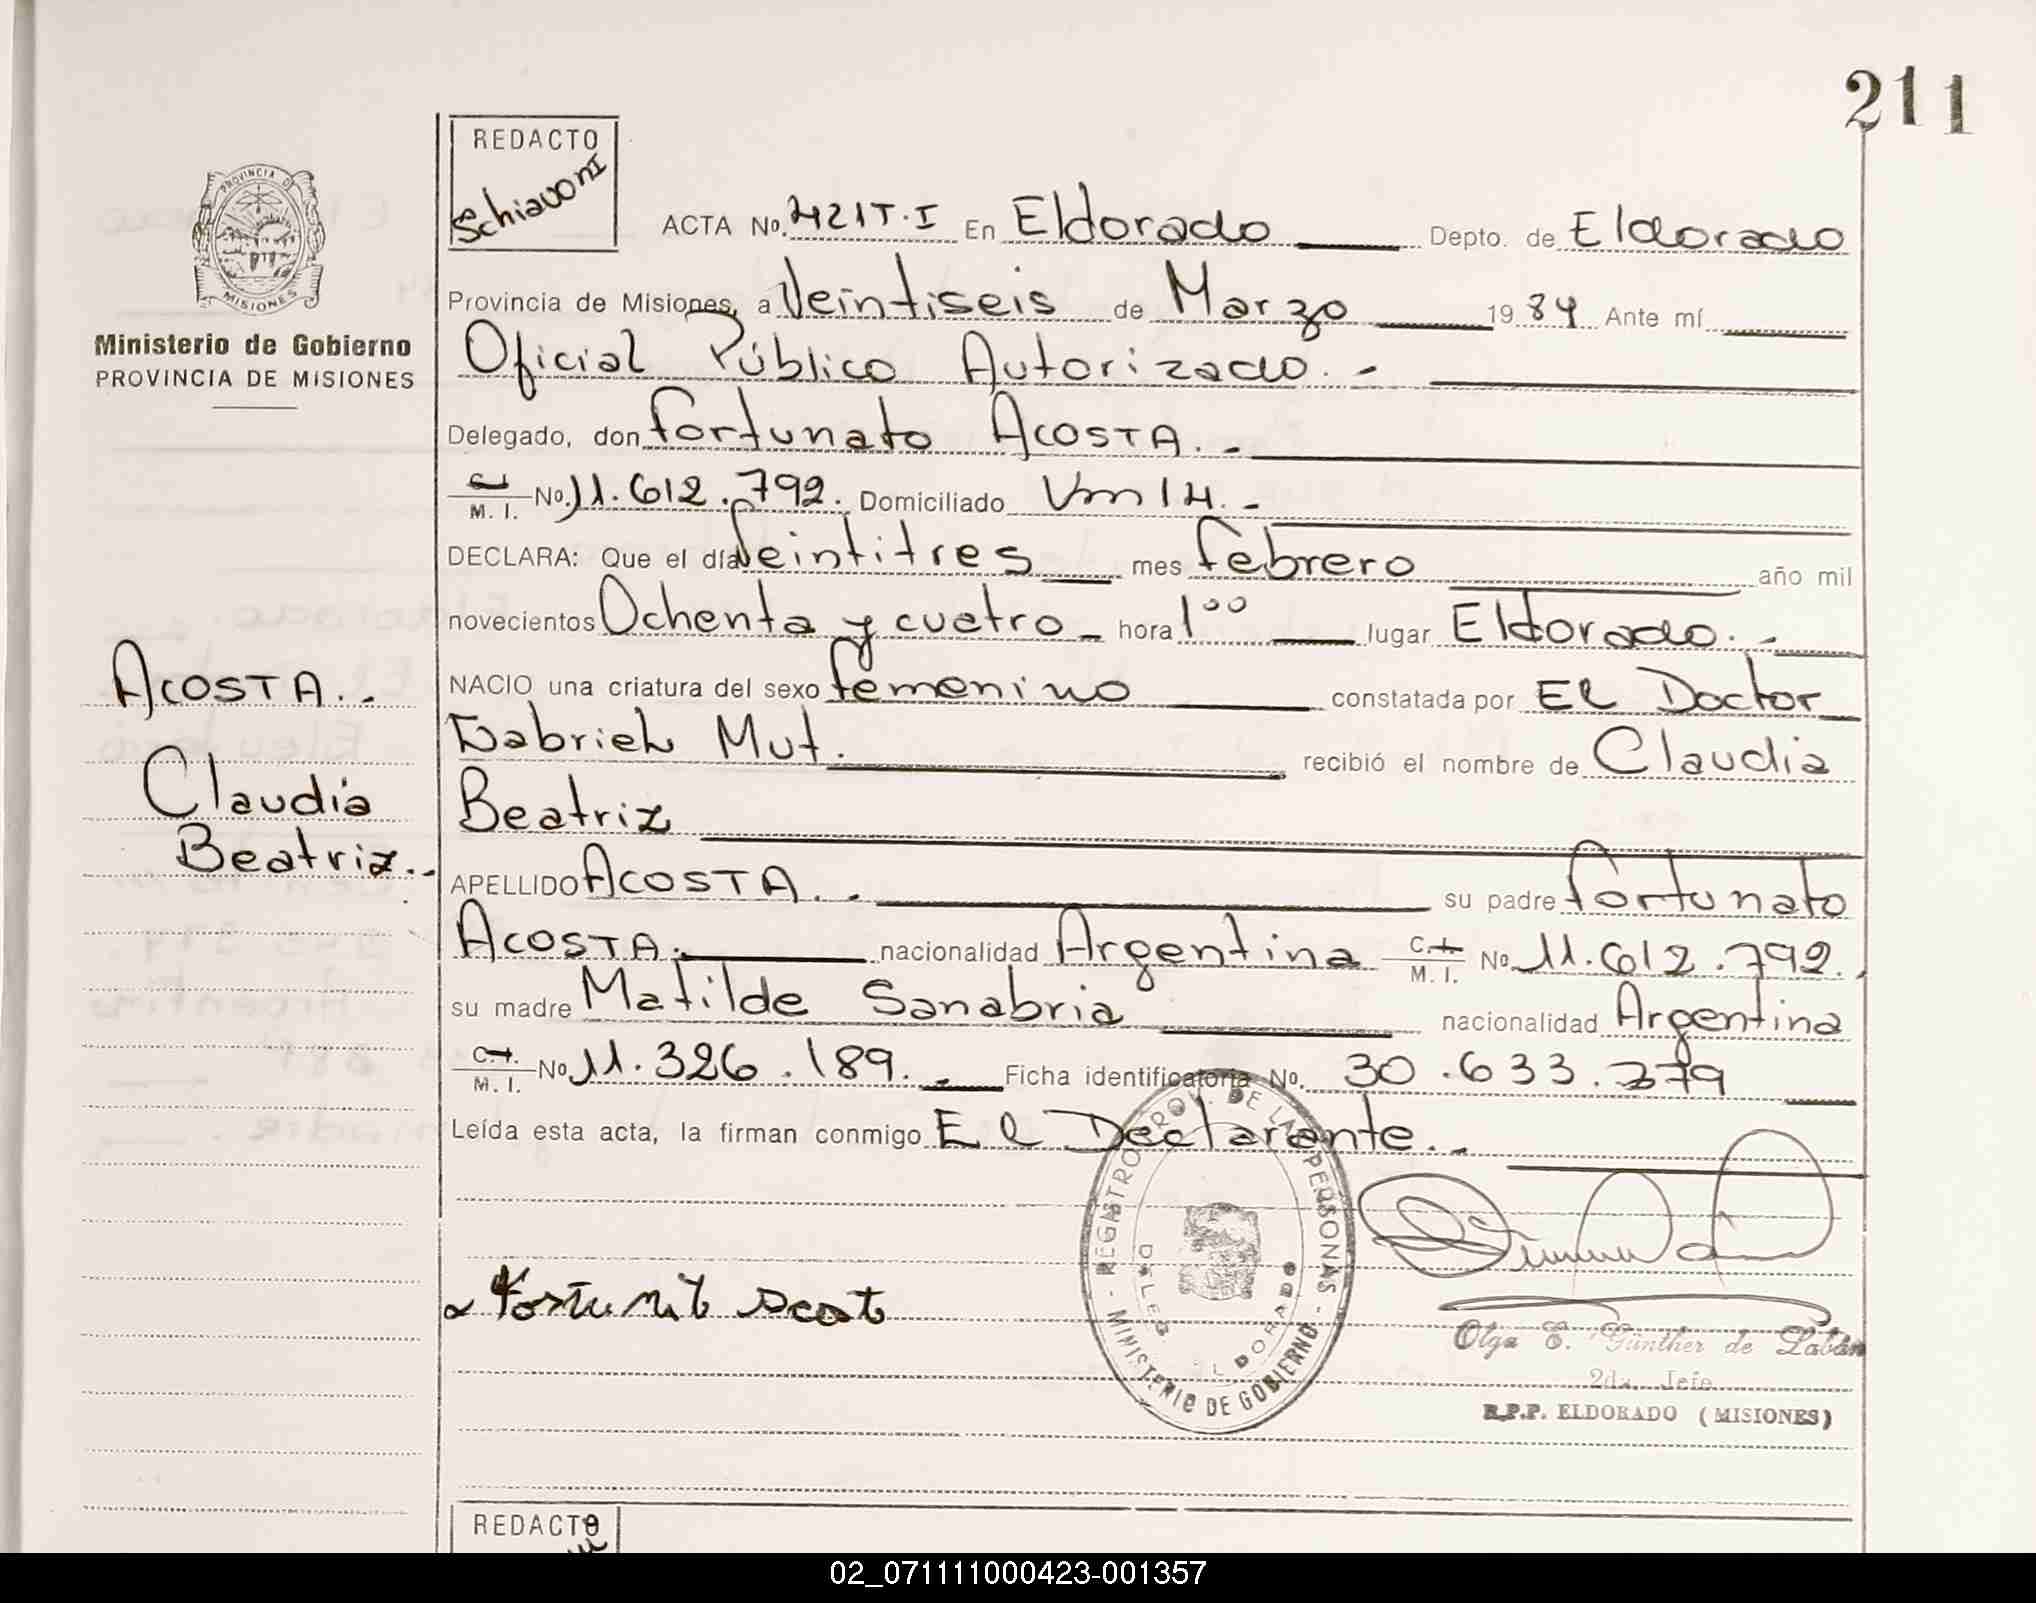 211
REDACTO
Schiavoni
PROVINCIA DE
MISIONES
Ministerio de Gobierno
PROVINCIA DE MISIONES
ACTA No. 421 T. I En Eldorado Depto. de Eldorado
Provincia de Misiones, a Veintiseis de Marzo 1984 Ante mí
Oficial Público Autorizado. -
Delegado, don Fortunato ACOSTA. -
C.I. M. I. No. 11.612.792. Domiciliado Km 14. -
DECLARA: Que el día Veintitres mes Febrero año mil
novecientos Ochenta y cuatro - hora 1 00 lugar Eldorado. -
NACIO una criatura del sexo femenino constatada por El Doctor
Gabriel Mut. recibió el nombre de Claudia
Beatriz
ACOSTA. -
Claudia
Beatriz. -
APELLIDO ACOSTA. - su padre Fortunato
ACOSTA. nacionalidad Argentina C.I. M. I. No. 11.612.792.
su madre Matilde Sanabria nacionalidad Argentina
C.I. M. I. No. 11.326.189. - Ficha identificatoria No. 30.633.379
Leída esta acta, la firman conmigo El Declarante. -
REGISTRO PROV. DE LAS PERSONAS - MINISTERIO DE GOBIERNO -
DELEG. ELDORADO
Olga E. Günther de Labán
2da. Jefe
R.P.P. ELDORADO (MISIONES)
REDACTO
02_071111000423-001357